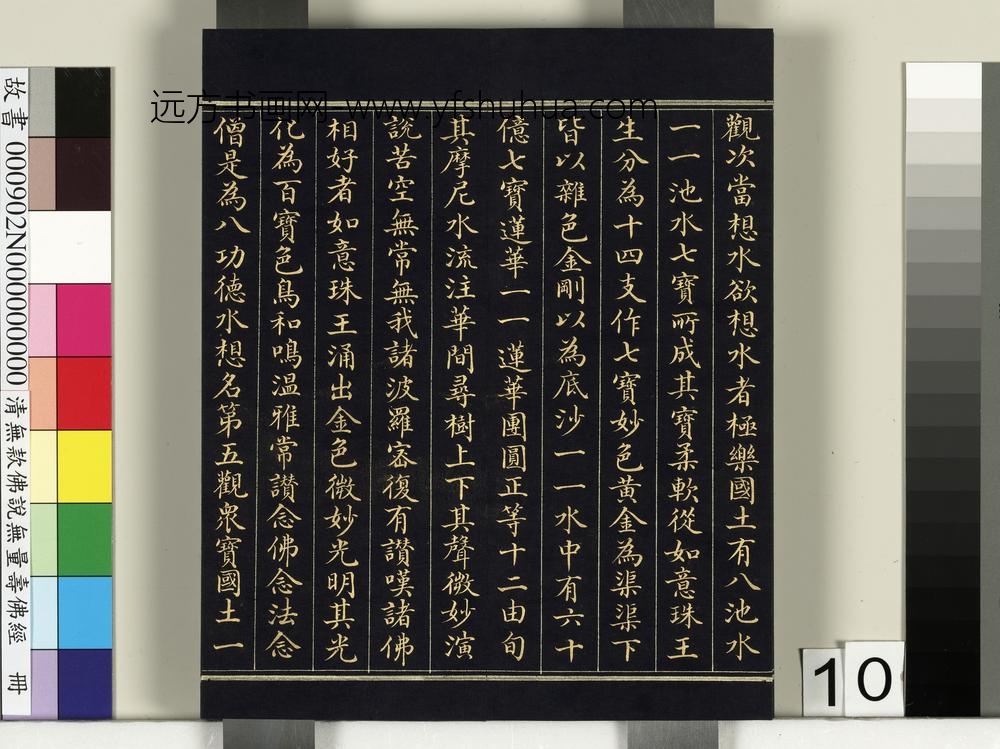 觀次當想水欲想水者極樂國土有八池水
一一池水七寶所成其寶柔軟從如意珠王
生分為十四支作七寶妙色黃金為渠渠下
皆以雜色金剛以為底沙一一水中有六十
億七寶蓮華一一蓮華團圓正等十二由旬
其摩尼水流注華間尋樹上下其聲微妙演
說苦空無常無我諸波羅密復有讃嘆諸佛
相好者如意珠王涌出金色微妙光明其光
化為百寶色鳥和鳴温雅常讃念佛念法念
僧是為八功德水想名第五觀衆寶國土一
远方书画网 www.yfshuhua.com
故書 000902N000000000 清無款佛說無量壽佛經 冊
10